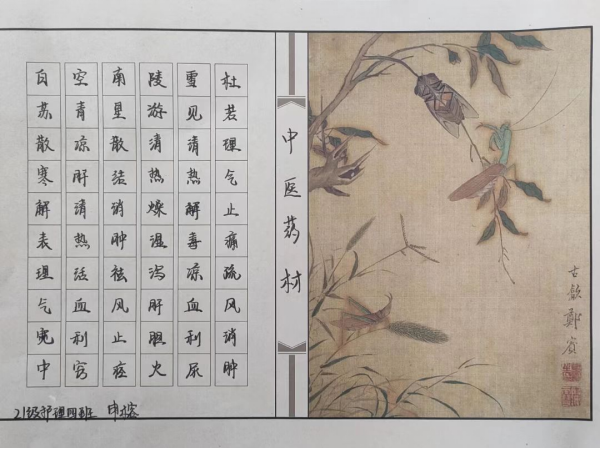 古歙鄭
中医药材
杜若理气止痛疏风消肿
雪见清热解毒凉血利尿
陵游清热燥湿泻肝胆火
南星散结消肿祛风止痉
空青凉肝清热活血利窍
白苏散寒解表理气宽中
21级护理四班 申